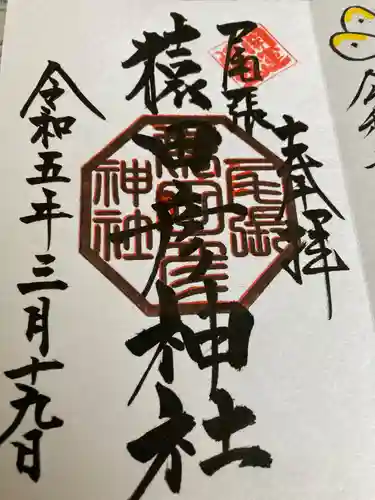 尾張
奉拝
猿田彦神社
令和五年三月十九日
尾張
猿田彦
神社